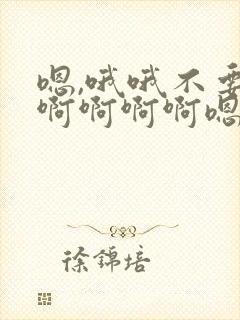 嗯,哦哦不要
啊啊啊啊嗯
徐锦培